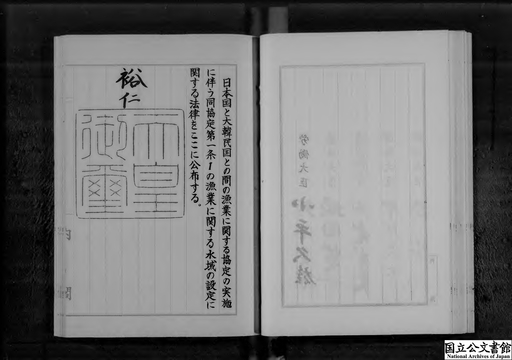 日本国と大韓民国との間の漁業に関する協定の実施
に伴う同協定第一条1の漁業に関する水域の設定に
関する法律をここに公布する。
裕仁
天皇
御璽
労働大臣
小平久雄
国立公文書館
National Archives of Japan